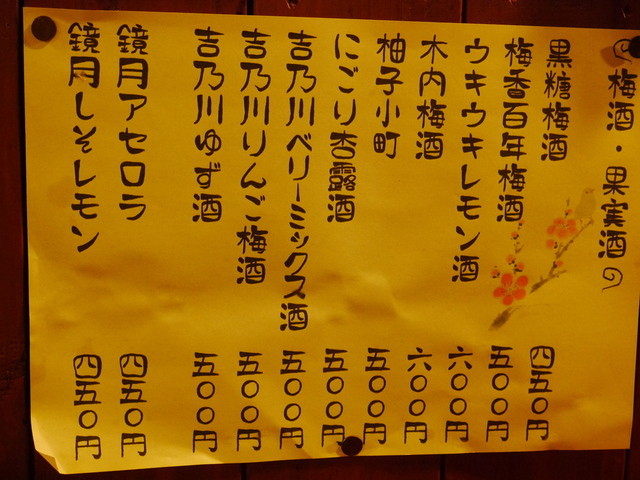 梅酒・果実酒の
黒糖梅酒 四五〇円
梅香百年梅酒 五〇〇円
ウキウキレモン酒 六〇〇円
木内梅酒 六〇〇円
柚子小町 五〇〇円
にごり杏露酒 五〇〇円
吉乃川ベリーミックス酒 五〇〇円
吉乃川りんご梅酒 五〇〇円
吉乃川ゆず酒 五〇〇円
鏡月アセロラ 四五〇円
鏡月しそレモン 四五〇円